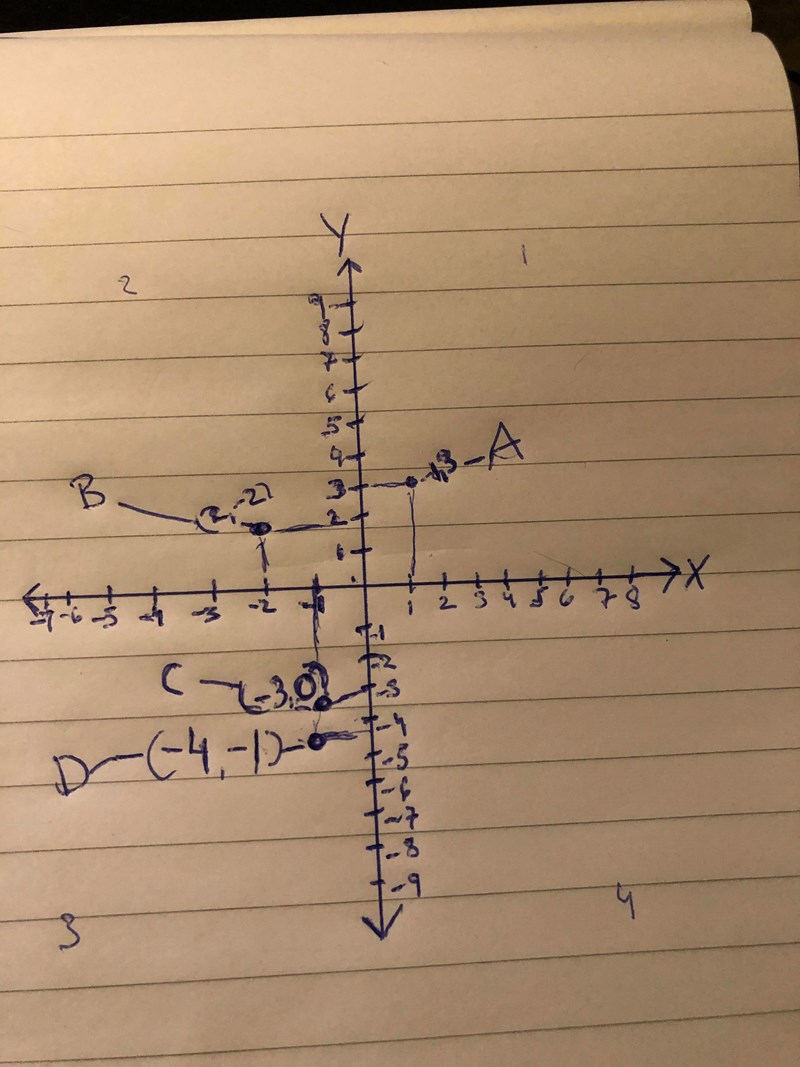 Y
2 1
9
8
7
6
5
4
3 A
B (2,-2)
2
1
-7 -6 -5 -4 -3 -2 -1 1 2 3 4 5 6 7 8 X
-1
-2
C (-3,0)
-3
-4
D (-4,-1)
-5
-6
-7
-8
-9
3 4